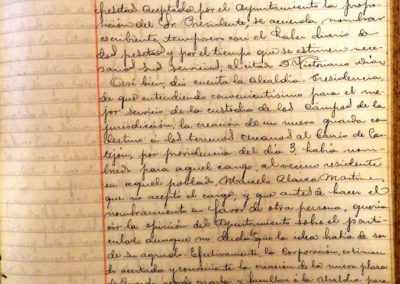 pesetas. Aceptada por el Ayuntamiento la propo-
sición del Sr. Presidente, se acuerda nombrar
escribiente temporero con el haber diario de
dos pesetas y por el tiempo que se estimen nece-
sarios sus servicios, al citado D. Victoriano Díaz
Así bien, dió cuenta la Alcaldía Presidencia,
de que entendiendo convenientísimo para el me-
jor servicio de la custodia de los Campos de la
jurisdicción, la creación de un nuevo guarda con
destino a los terrenos cercanos al barrio de Cas-
tejón, por providencia del día 3 había nom-
brado para aquel cargo al vecino residente
en aquel poblado, Manuel Martine
que no aceptó el cargo, y que antes de hacer el
nombramiento en favor de otra persona, quería
oir la opinión del Ayuntamiento sobre el parti-
cular aunque no duda que la idea habia de ser
de su agrado. Efectivamente, la Corporación, estiman
do acertada y conveniente la creación de la nueva plaza
de Guarda a la Alcaldía para